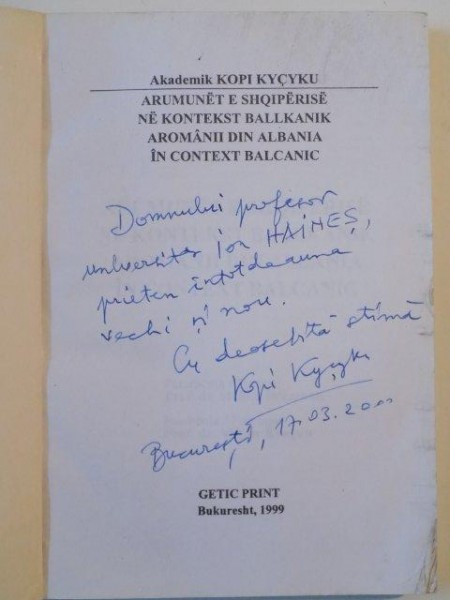 Akademik KOPI KYÇYKU
ARUMUNËT E SHQIPËRISË
NË KONTEKST BALLKANIK
AROMÂNII DIN ALBANIA
ÎN CONTEXT BALCANIC
Domnului profesor
universitar Ion HAINEȘ,
prieten întotdeauna
vechi și nou.
Cu deosebită stimă
Kopi Kyçyku
București, 17.03.2000
GETIC PRINT
Bukuresht, 1999